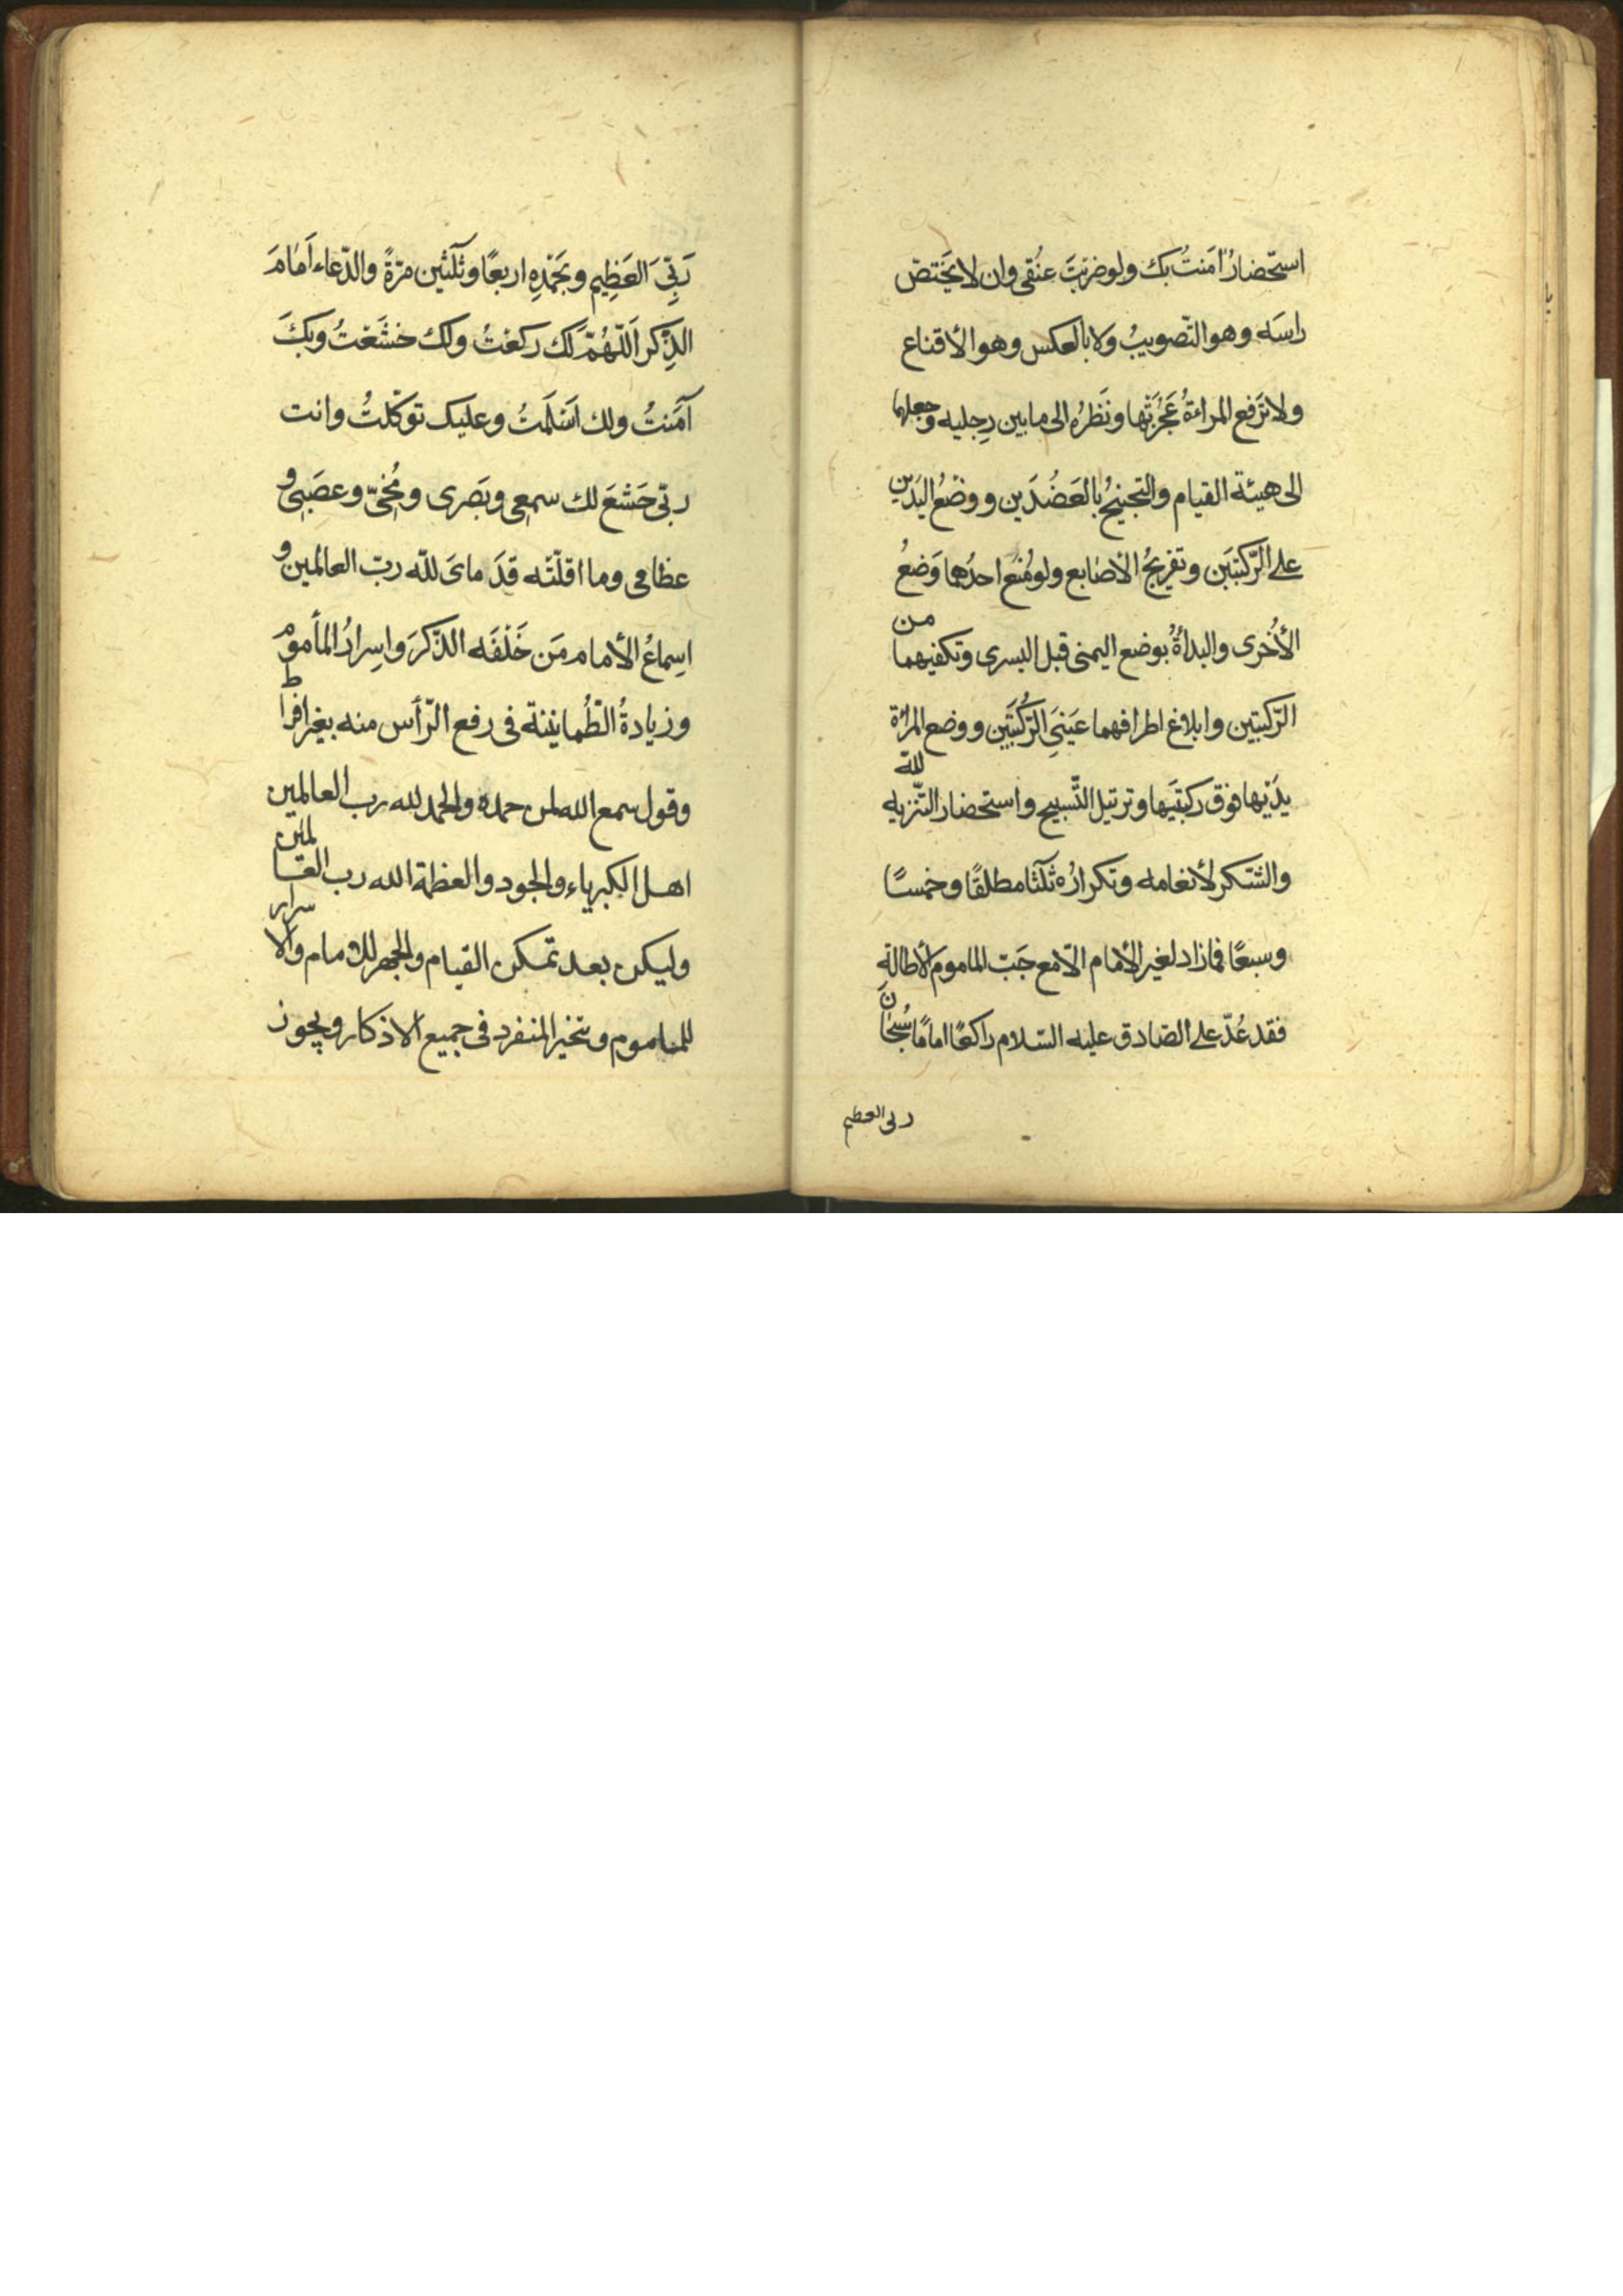 استحضارُ امَنتُ بك ولو ضربتَ عنُقى وان لا يَختصّ
راسَه وهو التّصويبُ ولا بالعكس وهو الأقناع
ولا ترَفع المراءةُ عَجُزَتَها ونَظرُه الى ما بين رِجليه وجعلها
الى هيئة القيام والتجنيحُ بالعَضُدَين ووضْعُ اليَدَين
على الرّكبتَين وتفريجُ الأصٰابع ولو مُنع احدٰهما وَضعُ
الأُخرٰى والبدأةُ بوضع اليمنى قبل اليسرى وتكفيهما من
الرّكبتين وابلاغ اطرافهما عَينَىِ الرّكُبتَين ووضع المرأة
يدَيْها فوق ركبتَيها وترتيل التّسبيح واستحضار التّنزيه لله
والشّكر لأنعامه وتكرارُه ثلٰثا مطلقًا وخمسًا
وسبعًا فما زاد لغير الأمام الّا مع حَبّ الماموم الأطالةَ
فقد عُدّ على الصّادق عليه السّلام راكعًا امامًا سُبحٰانَ
ربى العظيم
رَبِّىَ العَظِيم وبَحَمْدِه اربعًا وثلٰثين مرّةً والدّعٰاء اَمٰامَ
الذِّكر اَللّٰهُمّ لَك ركعْتُ ولكَ خشَعْتُ وبكَ
آمَنتُ ولك اَسْلَمْتُ وعليك توكّلتُ وانت
ربّى خَشَعَ لك سمعِى وبَصَرى ومُخىّ وعصَبِى و
عظامى وما اقلّتْه قدَ ماىَ للّه ربّ العالمين و
اِسماعُ الأمام مَن خَلْفَه الذّكرَ واسِرارُ المأموم
وزيادةُ الطّمانينة فى رفع الرّأس منه بغير افراط
وقول سمع الله لمن حمده والحمد لله رب العالمين
اهل الكبرياء والجود والعظمة الله رب العالمين
وليكن بعد تمكن القيام والجهر للامام والاسرار
للماموم ويتخير المنفرد فى جميع الاذكار ويجوز